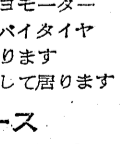 ヨモーター
バイタイヤ
ります
して居ります
ース